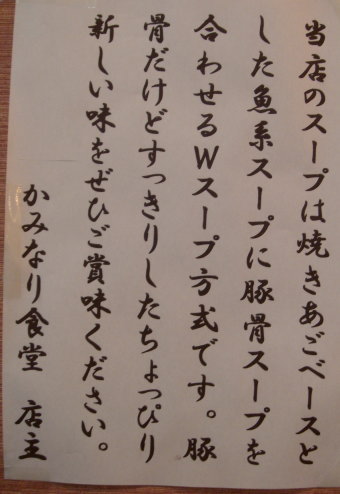 当店のスープは焼きあごベースと
した魚系スープに豚骨スープを
合わせるWスープ方式です。豚
骨だけどすっきりしたちょっぴり
新しい味をぜひご賞味ください。
かみなり食堂 店主